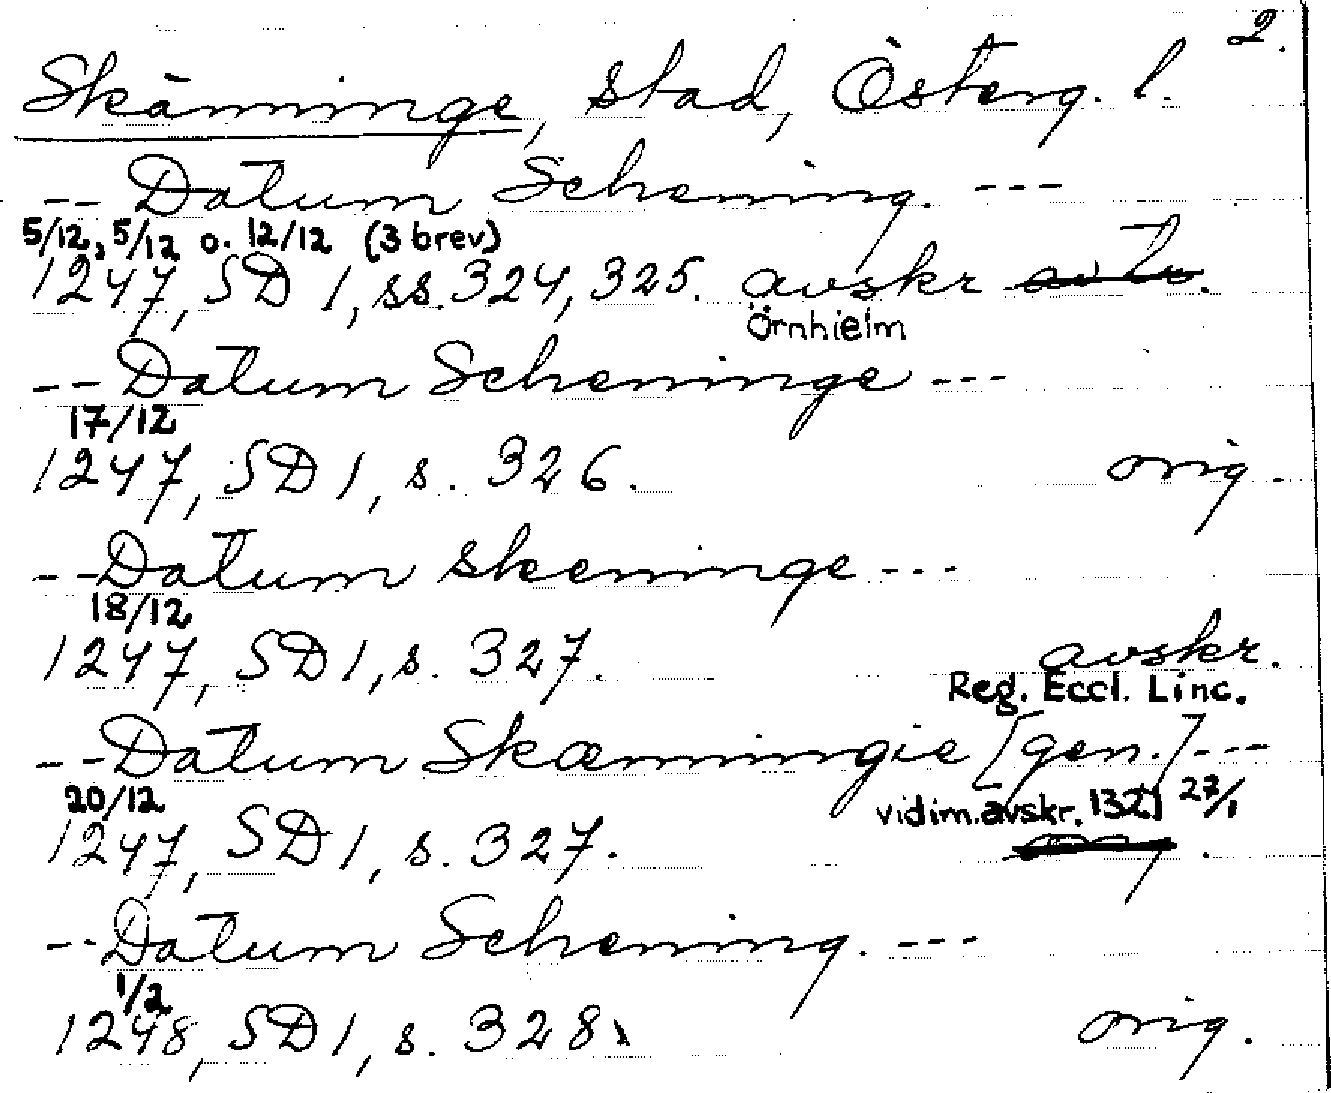 2.
Skänninge, stad, Österg. l.
-- Datum Schening. ---
5/12, 5/12 o. 12/12 (3 brev)
1247, SD 1, ss. 324, 325. avskr
Örnhielm
-- Datum Scheninge ---
17/12
1247, SD 1, s. 326. orig.
-- Datum skeninge ---
18/12
1247, SD 1, s. 327. avskr.
Reg. Eccl. Linc.
-- Datum Skænningie [gen.] ---
20/12 vidim. avskr. 1321 27/1
1247, SD 1, s. 327.
-- Datum Schening. ---
1/2
1248, SD 1, s. 328. orig.